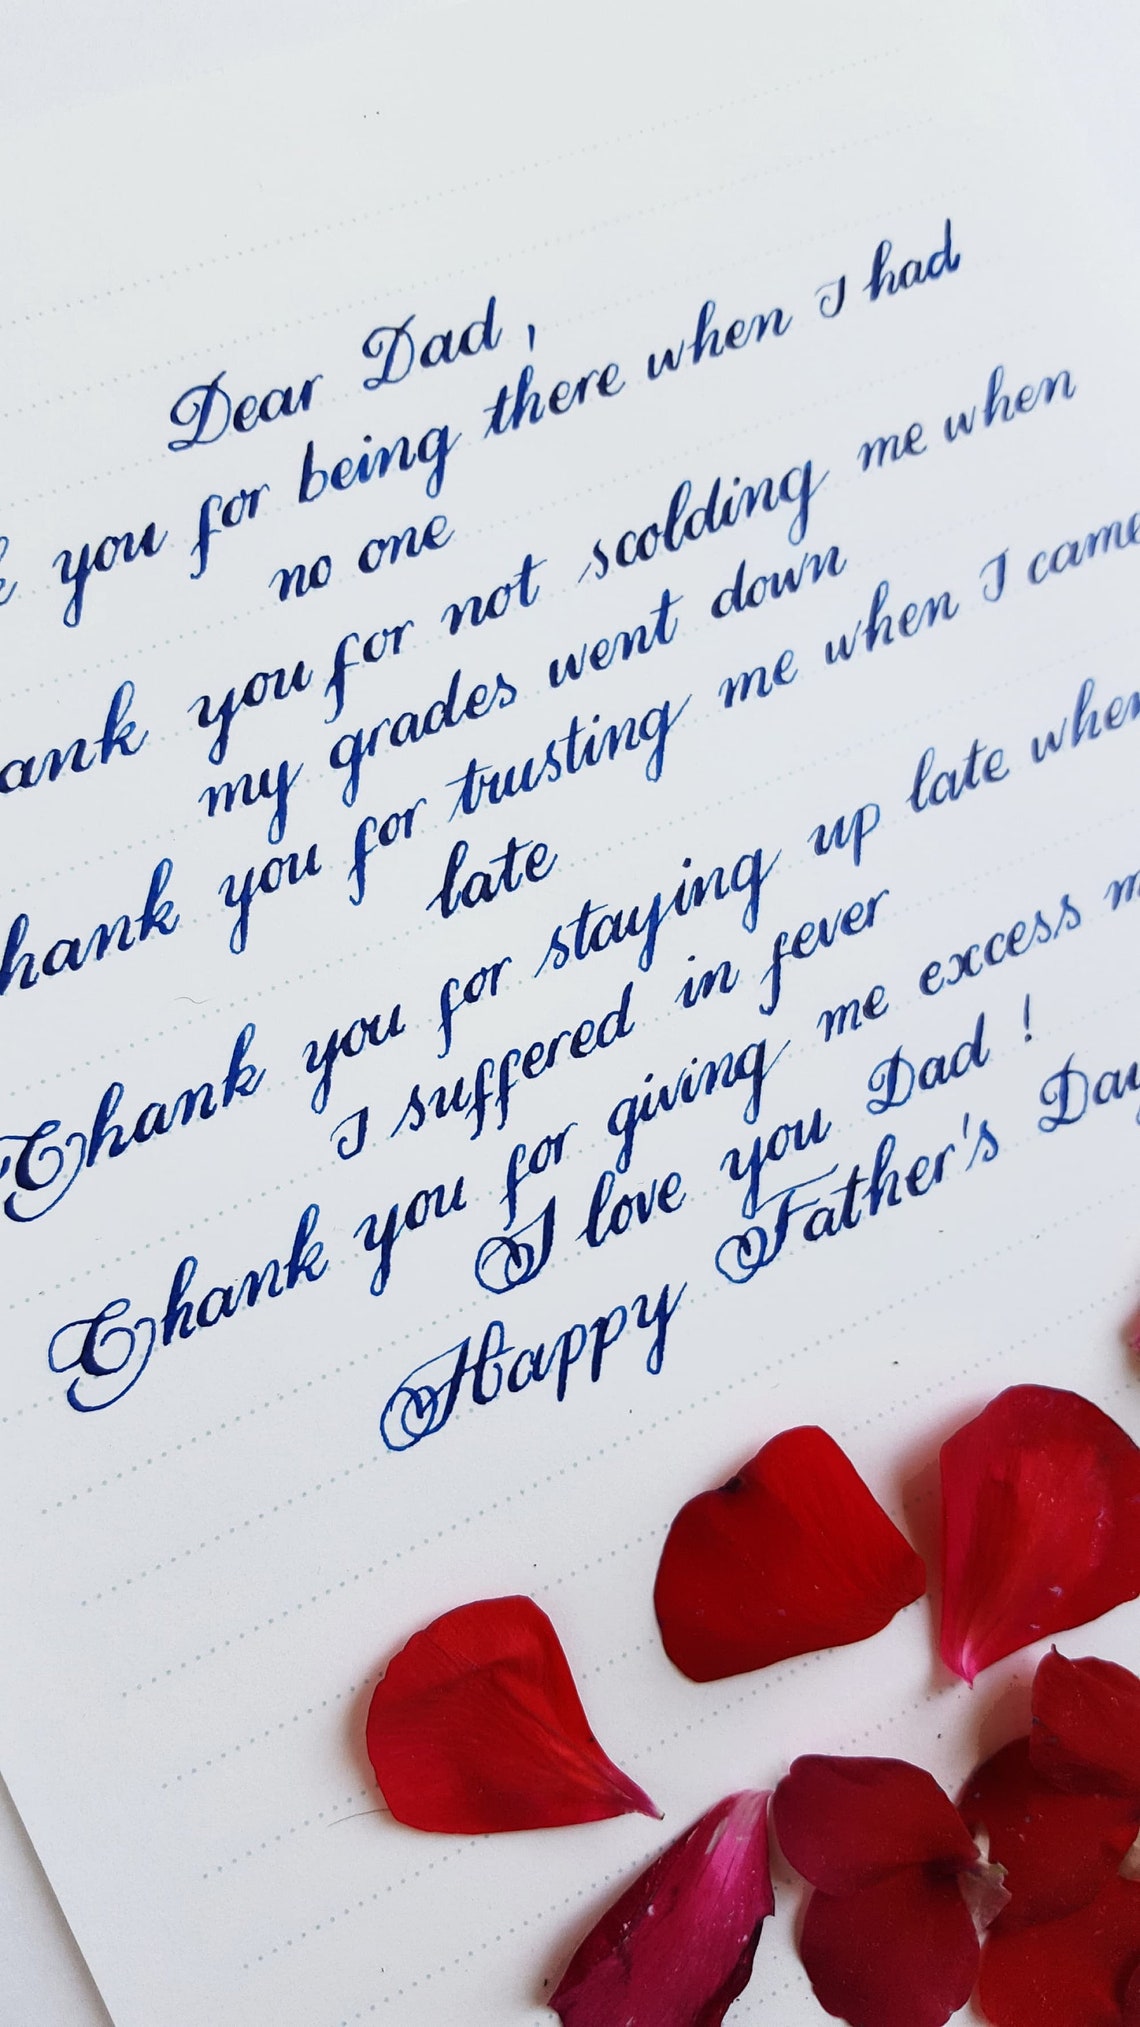 Dear Dad,
you for being there when I had
no one
ank you for not scolding me when
my grades went down
hank you for trusting me when I came
late
Thank you for staying up late when
I suffered in fever
Thank you for giving me excess m
I love you Dad !
Happy Father's Day